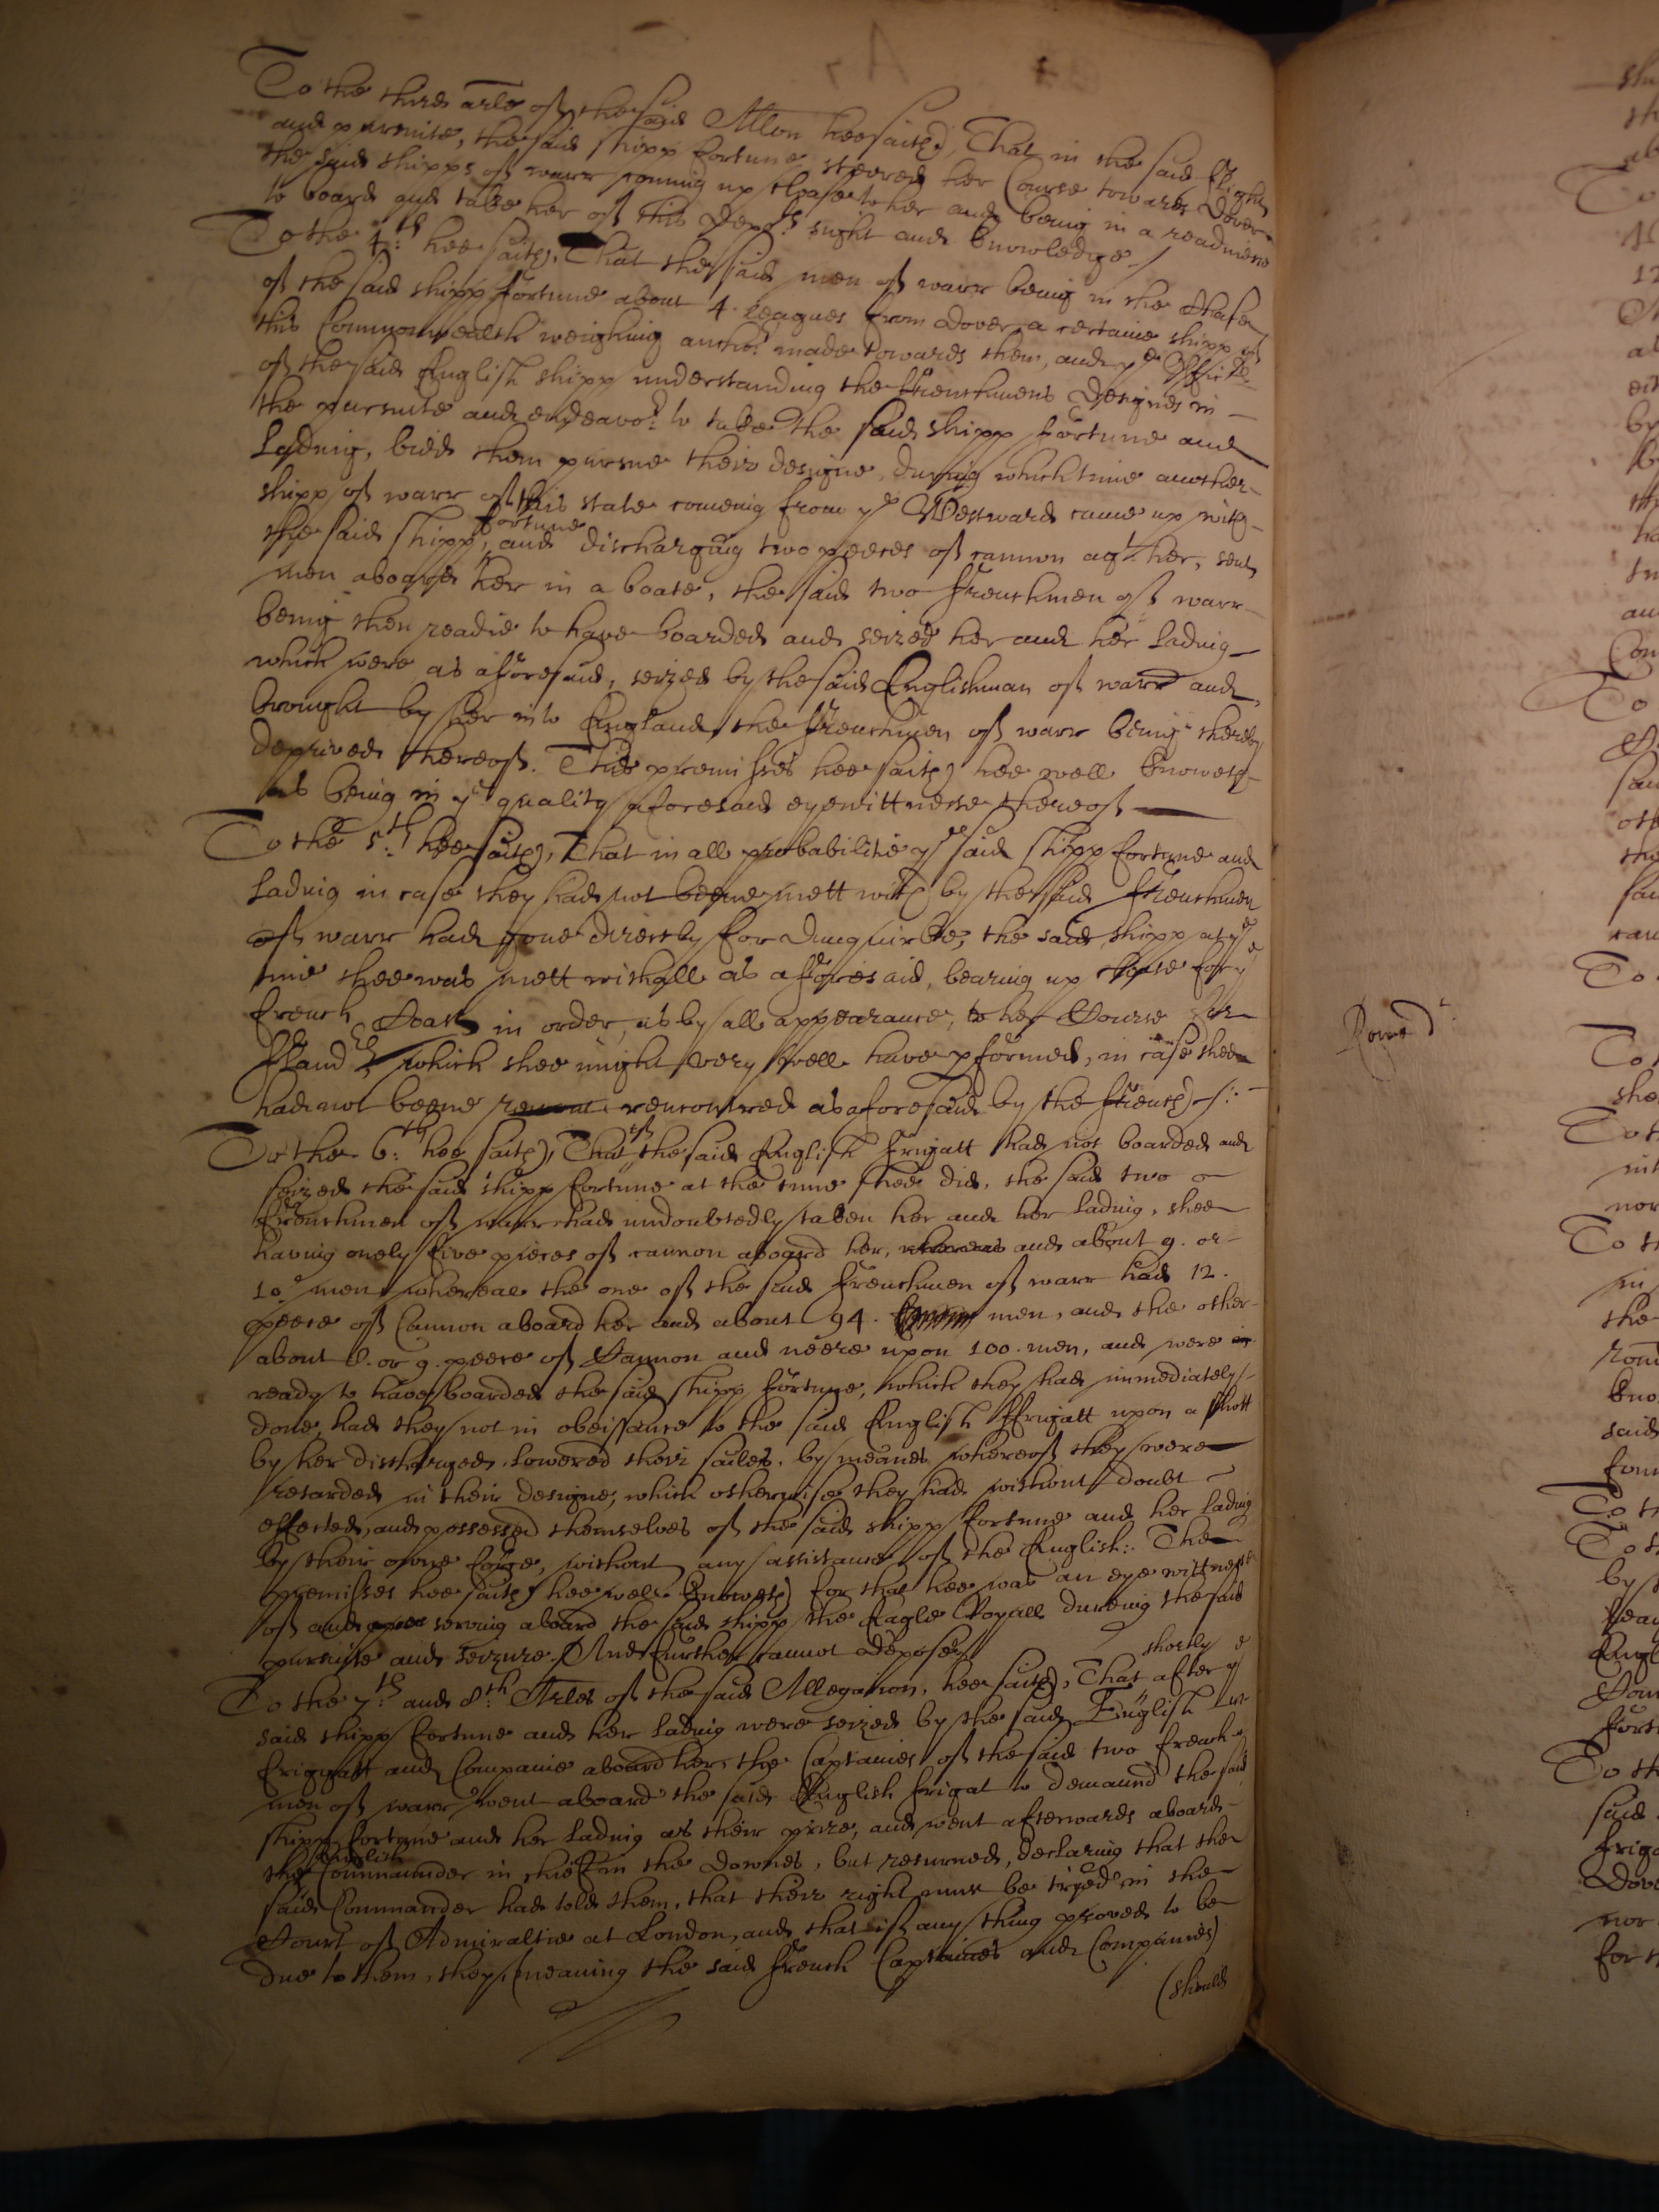 To the third arle of the said Allon hee saith, That in the said flight
and pursuite, the said shipp fortune steered her Course towards Dover
the said shipps of warr coming up close to her and being in a readinesse
to board and take her of this depts sight and knowledge /
To the 4th: hee saith, That the said men of warr being in the chase
of the said shipp fortune about 4. leagues from Dover a certaine shipp of
this Commonwealth weighing anchor made towards them, and ye Officers
of the said English shipp understanding the ffrenchmens designes in
the pursuite and endeavor. to take the said shipp fortune and
Lading, bidd them pursue their designe, During which time another
shipp of warr of this state comeing from ye Westward came up with
the said shipp fortune, and discharging two peeces of cannon agt her, sent
men aboard her in a boate, the said two ffrenchmen of warr
being then readie to have boarded and seized her and her lading
which were as aforesaid, seized by the said Englishman of warr and
brought by her into England the ffrenchmen of warr being thereby
deprived thereof. The premisses hee saith hee well knoweth
as being in ye quality aforesaid eyewittnesse thereof
To the 5th: hee saith, That in all probabilitie ye said shipp fortune and
lading in case they had not beene mett with by the said ffrenchmen
of warr had gone directly for Dunquirke, the said shipp at ye
time shee was mett withall as afforesaid, bearing up close for ye
french Coast in order, as by all appearance, to her Course for
ffland which shee might very well have pformed, in case shee
had not beene rencontred as aforesaid by the ffrench /:
To the 6th: hee saith, That if the said English frigatt had not boarded and
seized the said shipp fortune at the time shee did, the said two
ffrenchmen of warr had undoubtedly taken her and her lading, shee
having onely five pieces of cannon aboard her, whereas and about 9. or
10 men whereas the one of the said ffrenchmen of warr had 12.
peece of Cannon aboard her and about 94. men, and the other
about 8. or 9. peece of Cannon and neere upon 100. men, and were
ready to have boarded the said shipp fortune, which they had immediately
done, had they not in obeissance to the said English ffrigatt upon a shott
by her discharged, lowered their sailes, by meanes whereof they were
retarded in their designe, which otherwise they had without doubt
effected, and possessed themselves of the said shipp fortune and her lading
by their owne force, without any assistance of the English: The
premisses hee saith hee well knoweth for that hee was an eye wittnesse
of and serving aboard the said shipp the Eagle Royall dureing the said
pursuite and seizure. And further cannot depose
To the 7th: and 8th: Arles of the said Allegation, hee saith, That shortly after ye
said shipp fortune and her lading were seized by the said English
friggatt and Companie aboard her, the Captaines of the said two french
men of warr went aboard the said English frigat to demaund the said
shipp fortune and her lading as their prize, and went afterwards aboard
the English Commaunder in chieff in the Downes, but returned, declaring that the
said Commander had told them, that their right must be tryed in the
Court of Admiraltie at London, and that if any thing proved to be
due to them, they (meaning the said ffrench Captaines and Companies)
(should